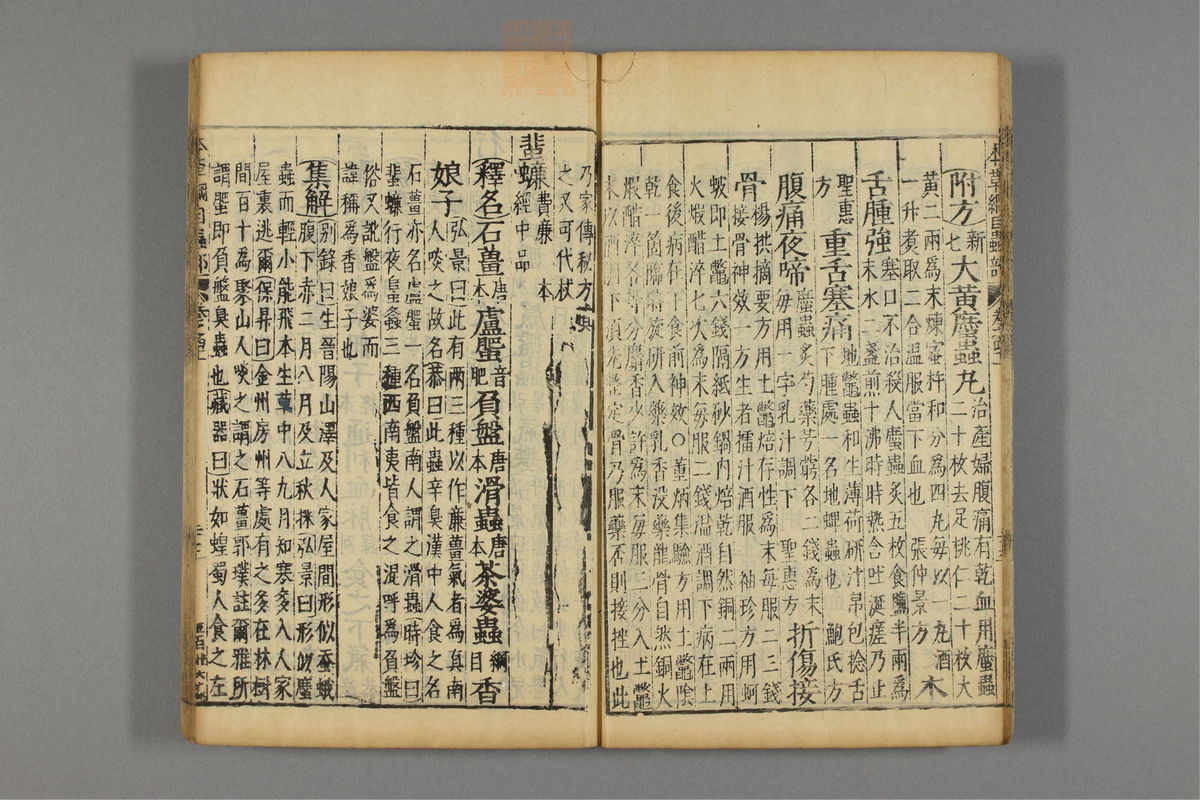 本草綱目蟲部 卷之四十一
附方 新七 大黃䗪蟲丸 治產婦腹痛有乾血用䗪蟲二十枚去足桃仁二十枚大
黃二兩爲末煉蜜杵和分爲四丸每以一丸酒
一升煮取二合溫服當下血也 張仲景方 木
舌腫強 塞口不治殺人䗪蟲炙五枚食鹽半兩爲末水二盞煎十沸時時熱含吐涎瘥乃止
聖惠方 重舌塞痛 地鼈蟲和生薄荷研汁帛包捻舌下腫處一名地蜱蟲也 鮑氏方
腹痛夜啼 䗪蟲炙芍藥芎藭各二錢爲末每用一字乳汁調下 聖惠方 折傷接
骨 楊拱摘要方用土鼈焙存性爲末每服二三錢接骨神效一方生者擂汁酒服 袖珍方用蚵
蚾即土鼈六錢隔紙砂鍋內焙乾自然銅二兩用
火煅醋淬七次爲末每服二錢溫酒調下病在上
食後病在下食前神效○董炳集驗方用土鼈陰
乾一箇臨時旋研入藥乳香沒藥龍骨自然銅火
煅醋淬各等分麝香少許爲末每服三分入土鼈
末以酒調下須先整定骨乃服藥否則接挫也此
乃家傳秘方
之又可代杖
蜚蠊 費廉 本經中品
釋名 石薑 唐本 盧蜰 音肥 負盤 唐本 滑蟲 唐本 茶婆蟲 綱目 香
娘子 弘景曰此有兩三種以作廉薑氣者爲眞南人啖之故名恭曰此蟲辛臭漢中人食之名
石薑亦名盧蜰一名負盤南人謂之滑蟲時珍曰
蜚蠊行夜𧒂螽三種西南夷皆食之混呼爲負盤
俗又訛盤爲婆而
諱稱爲香娘子也
集解 別錄曰生晉陽山澤及人家屋間形似蠶蛾腹下赤二月八月及立秋採弘景曰形似䗪
蟲而輕小能飛本生草中八九月知寒多入人家
屋裏逃爾保昇曰金州房州等處有之多在林樹
間百十爲聚山人啖之謂之石薑郭璞註爾雅所
謂蜰即負盤臭蟲也藏器曰狀如蝗蜀人食之左
本草綱目蟲部 卷之四十一